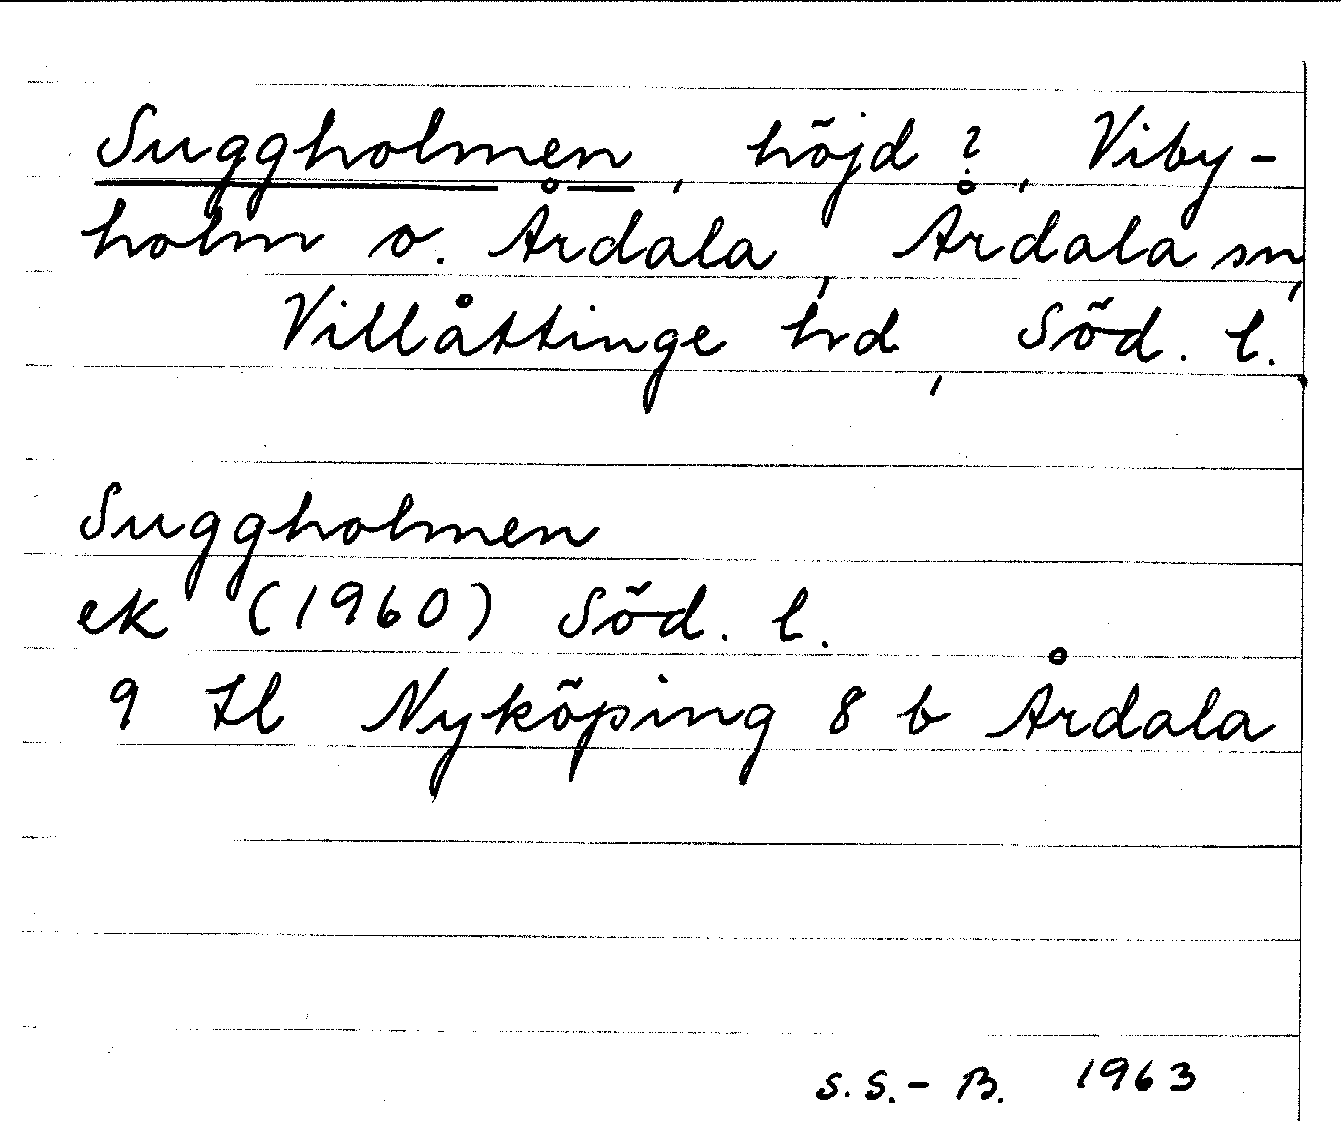 Suggholmen, höjd?, Viby-
holm o. Årdala, Årdala sn,
Villåttinge hd, Söd. l.
Suggholmen
ek (1960) Söd. l.
9 Hl Nyköping 8 b Årdala
S.S.-B. 1963